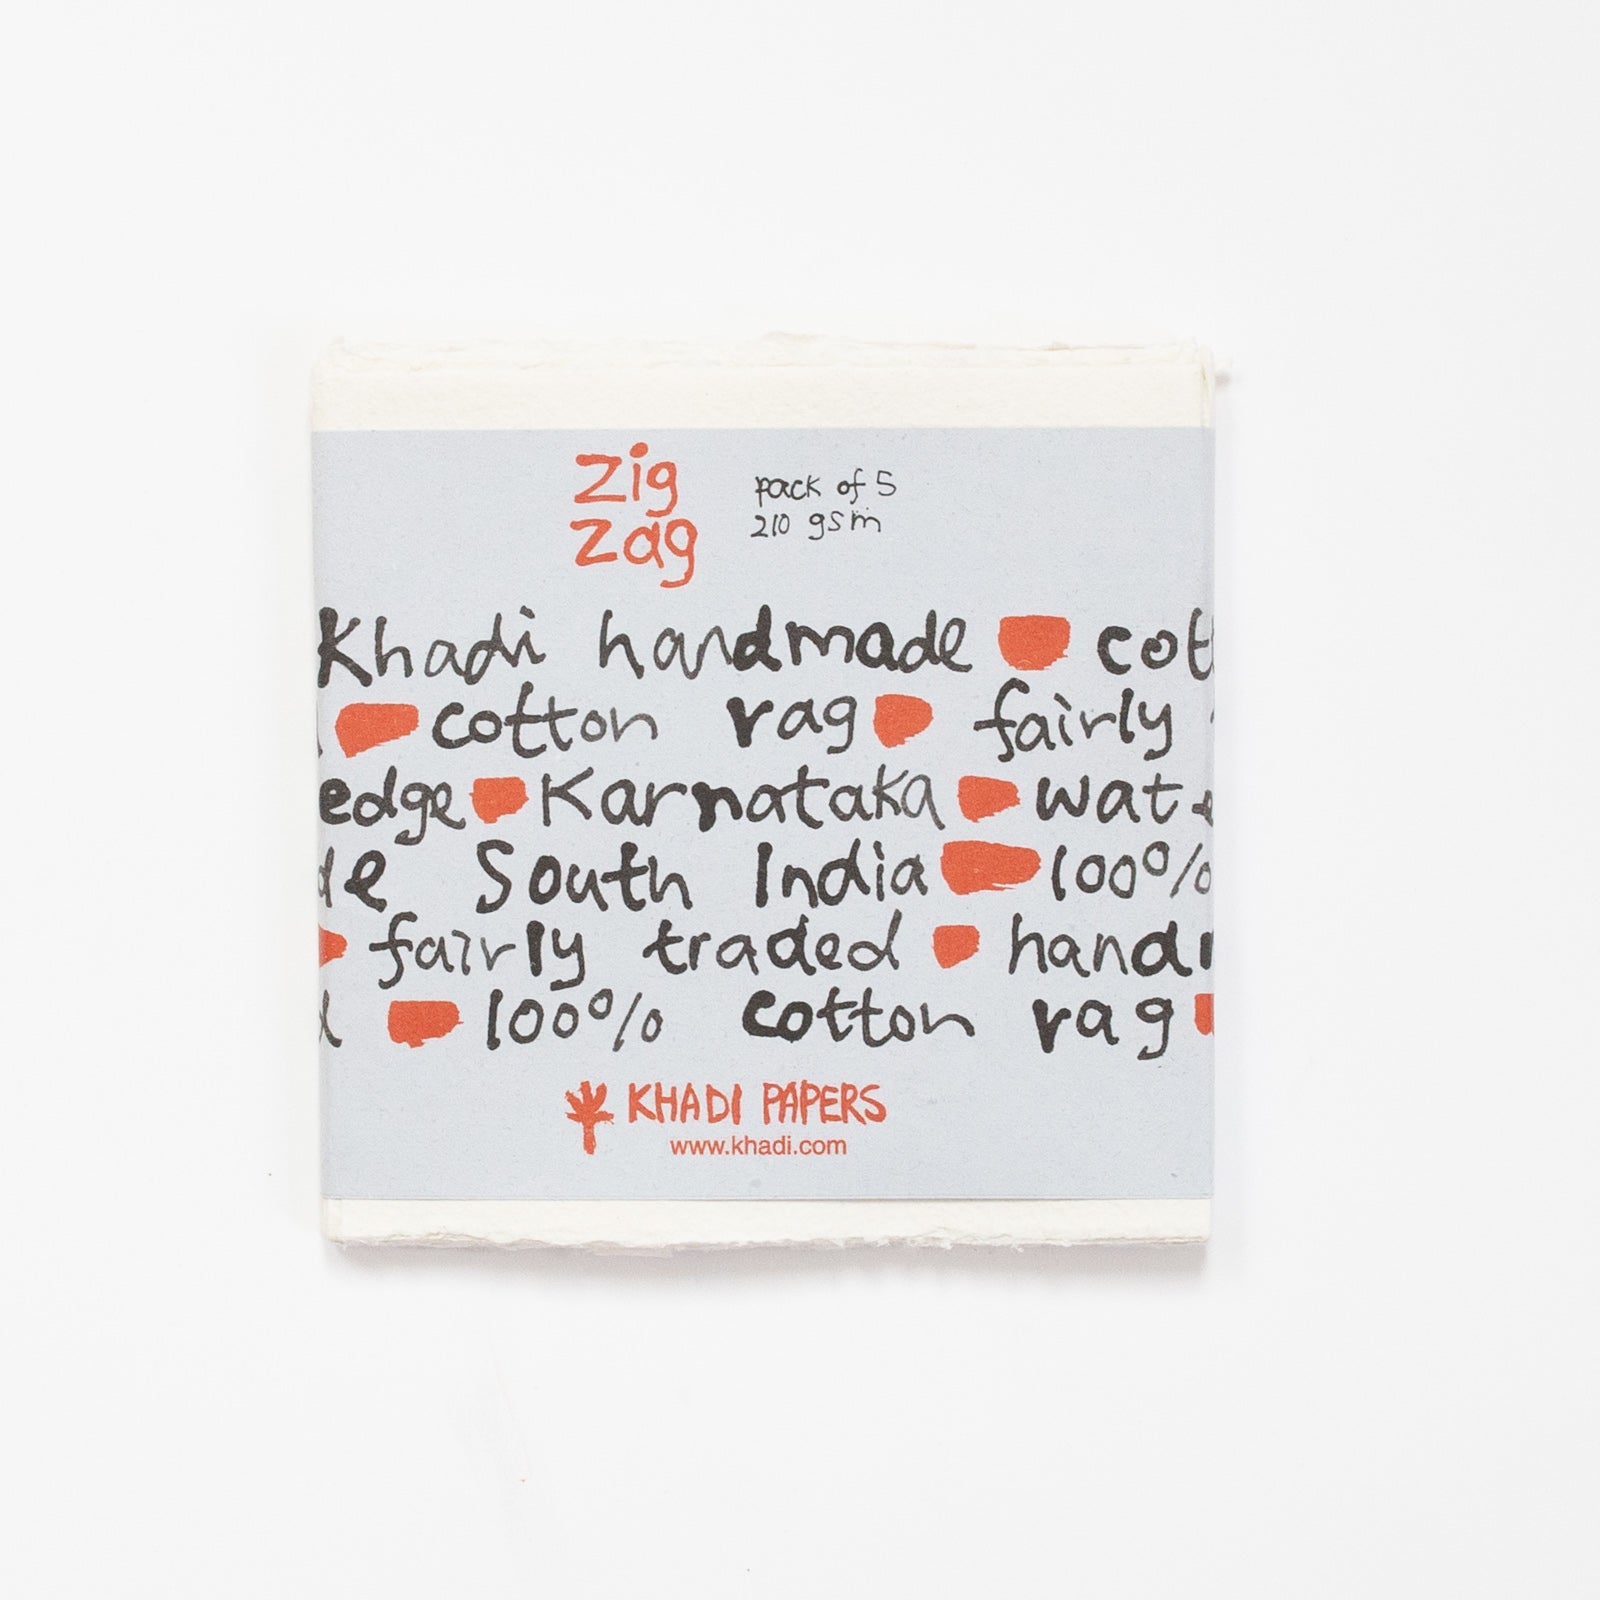 Zig
Zag
pack of 5
210 gsm
Khadi handmade cott
cotton rag fairly
edge Karnataka wate
de South India 100%
fairly traded handm
d 100% cotton rag
KHADI PAPERS
www.khadi.com